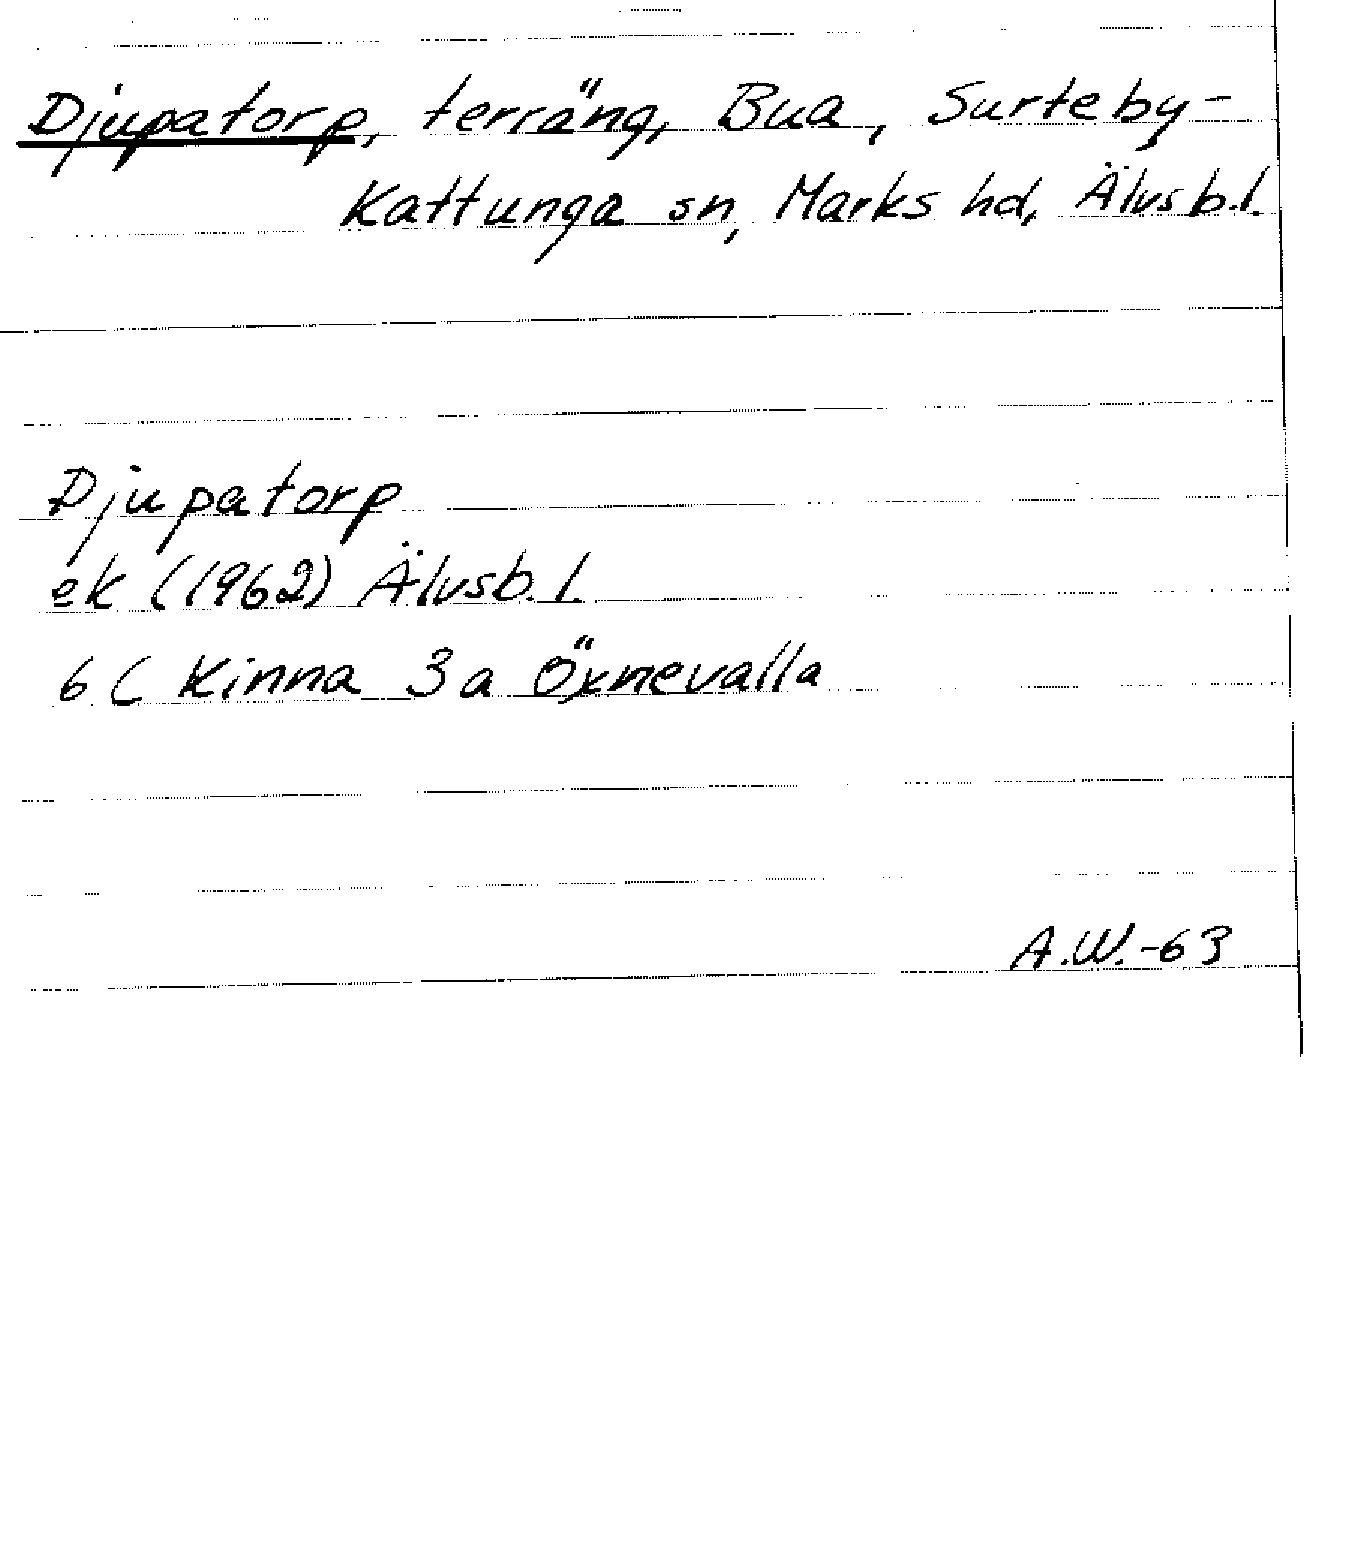 Djupatorp, terräng, Bua, Surteby-
Kattunga sn, Marks hd, Älvsb.l.
Djupatorp
ek (1962) Älvsb. l.
6 C Kinna 3 a Öxnevalla
A.W.-63